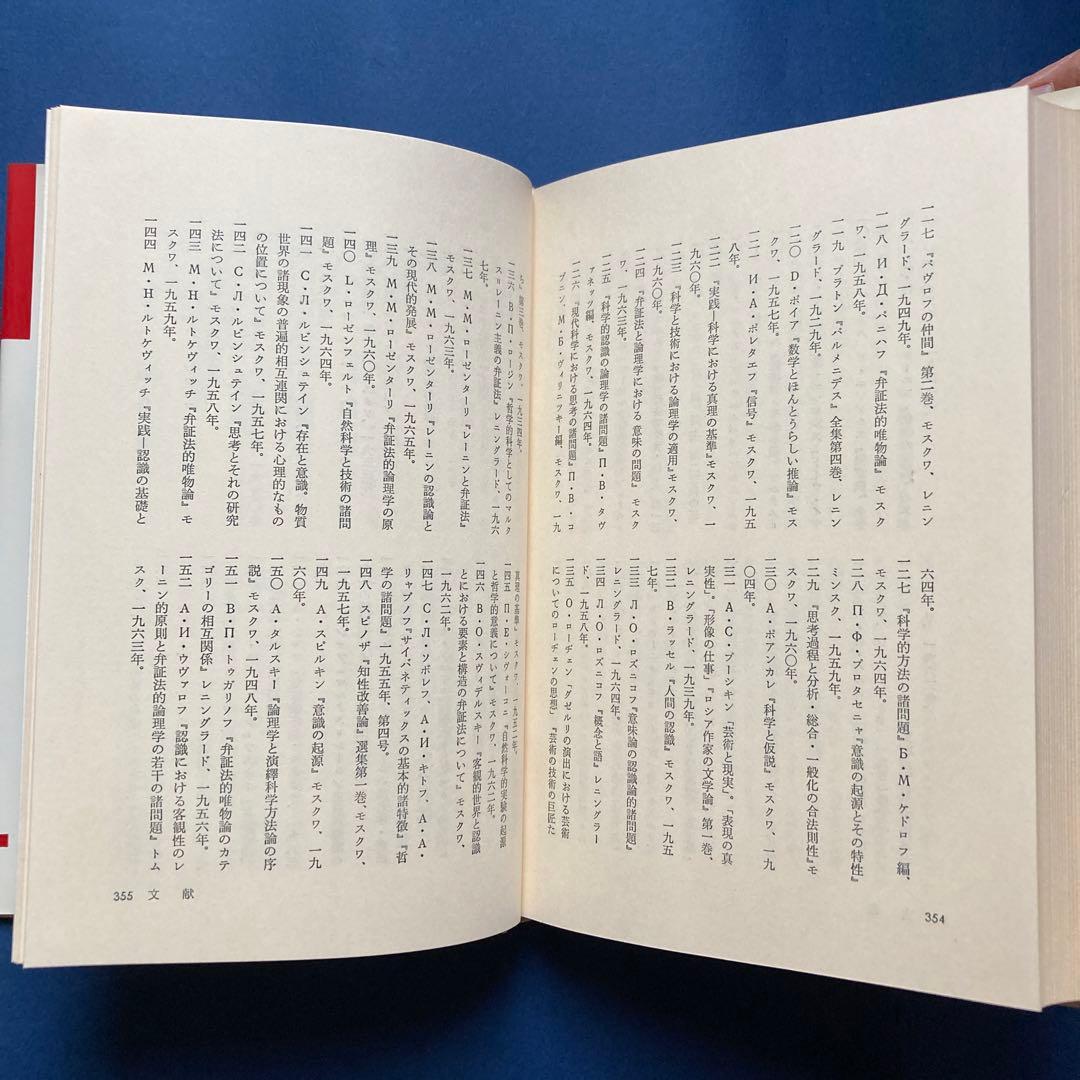 一一七 『パヴロフの仲間』第二巻、モスクワ、レニン
グラード、一九四九年。
一一八 И・Д・パニハフ『弁証法的唯物論』モスク
ワ、一九五八年。
一一九 プラトン『パルメニデス』全集第四巻、レニン
グラード、一九二九年。
一二〇 D・ポイア『数学とほんとうらしい推論』モス
クワ、一九五七年。
一二一 И・А・ポレタエフ『信号』モスクワ、一九五
八年。
一二二 『実践―科学における真理の基準』モスクワ、一
九六〇年。
一二三 『科学と技術における論理学の適用』モスクワ、
一九六〇年。
一二四 『弁証法と論理学における意味の問題』モスク
ワ、一九六三年。
一二五 『科学的認識の論理学の諸問題』П・В・タヴ
ァネッツ編、モスクワ、一九六四年。
一二六 『現代科学における思考の諸問題』П・В・コ
プニン、М・Б・ヴィリニツキー編、モスクワ、一九
六四年。
一二七 『科学的方法の諸問題』Б・М・ケドロフ編、
モスクワ、一九六四年。
一二八 П・Ф・プロタセニャ『意識の起源とその特性』
ミンスク、一九五九年。
一二九 『思考過程と分析・総合・一般化の合法則性』モ
スクワ、一九六〇年。
一三〇 A・ポアンカレ『科学と仮説』モスクワ、一九
〇四年。
一三一 А・С・プーシキン「芸術と現実」。「表現の真
実性」。「形像の仕事」『ロシア作家の文学論』第一巻、
レニングラード、一九三九年。
一三二 B・ラッセル『人間の認識』モスクワ、一九五
七年。
一三三 Л・О・ロズニコフ『意味論の認識論的諸問題』
レニングラード、一九六四年。
一三四 Л・О・ロズニコフ『概念と語』レニングラー
ド、一九五八年。
一三五 О・ローヂェン「グゼルリの演出における芸術
についてのローヂェンの思想」『芸術の技術の巨匠た
ち』第三巻、モスクワ、一九三四年。
一三六 В・П・ロージン『哲学的科学としてのマルク
ス=レーニン主義の弁証法』レニングラード、一九六
七年。
一三七 М・М・ローゼンターリ『レーニンと弁証法』
モスクワ、一九六三年。
一三八 М・М・ローゼンターリ『レーニンの認識論と
その現代的発展』モスクワ、一九六五年。
一三九 М・М・ローゼンターリ『弁証法的論理学の原
理』モスクワ、一九六〇年。
一四〇 L・ローゼンフェルト『自然科学と技術の諸問
題』モスクワ、一九六四年。
一四一 С・Л・ルビンシュテイン『存在と意識。物質
世界の諸現象の普遍的相互連関における心理的なもの
の位置について』モスクワ、一九五七年。
一四二 С・Л・ルビンシュテイン『思考とそれの研究
法について』モスクワ、一九五八年。
一四三 М・Н・ルトケヴィッチ『弁証法的唯物論』モ
スクワ、一九五九年。
一四四 М・Н・ルトケヴィッチ『実践―認識の基礎と
真理の基準』モスクワ、一九五二年。
一四五 П・Е・シヴォーコニ『自然科学的実験の起源
と哲学的意義について』モスクワ、一九六二年。
一四六 В・О・スヴィデルスキー『客観的世界と認識
とにおける要素と構造の弁証法について』モスクワ、
一九六二年。
一四七 С・Л・ソボレフ、А・И・キトフ、А・А・
リャプノフ『サイバネティックスの基本的諸特徴』『哲
学の諸問題』一九五五年、第四号。
一四八 スピノザ『知性改善論』選集第一巻、モスクワ、
一九五七年。
一四九 А・スピルキン『意識の起源』モスクワ、一九
六〇年。
一五〇 A・タルスキー『論理学と演繹科学方法論の序
説』モスクワ、一九四八年。
一五一 В・П・トゥガリノフ『弁証法的唯物論のカテ
ゴリーの相互関係』レニングラード、一九五六年。
一五二 А・И・ウヴァロフ『認識における客観性のレ
ーニン的原則と弁証法的論理学の若干の諸問題』トム
スク、一九六三年。
354
355 文献